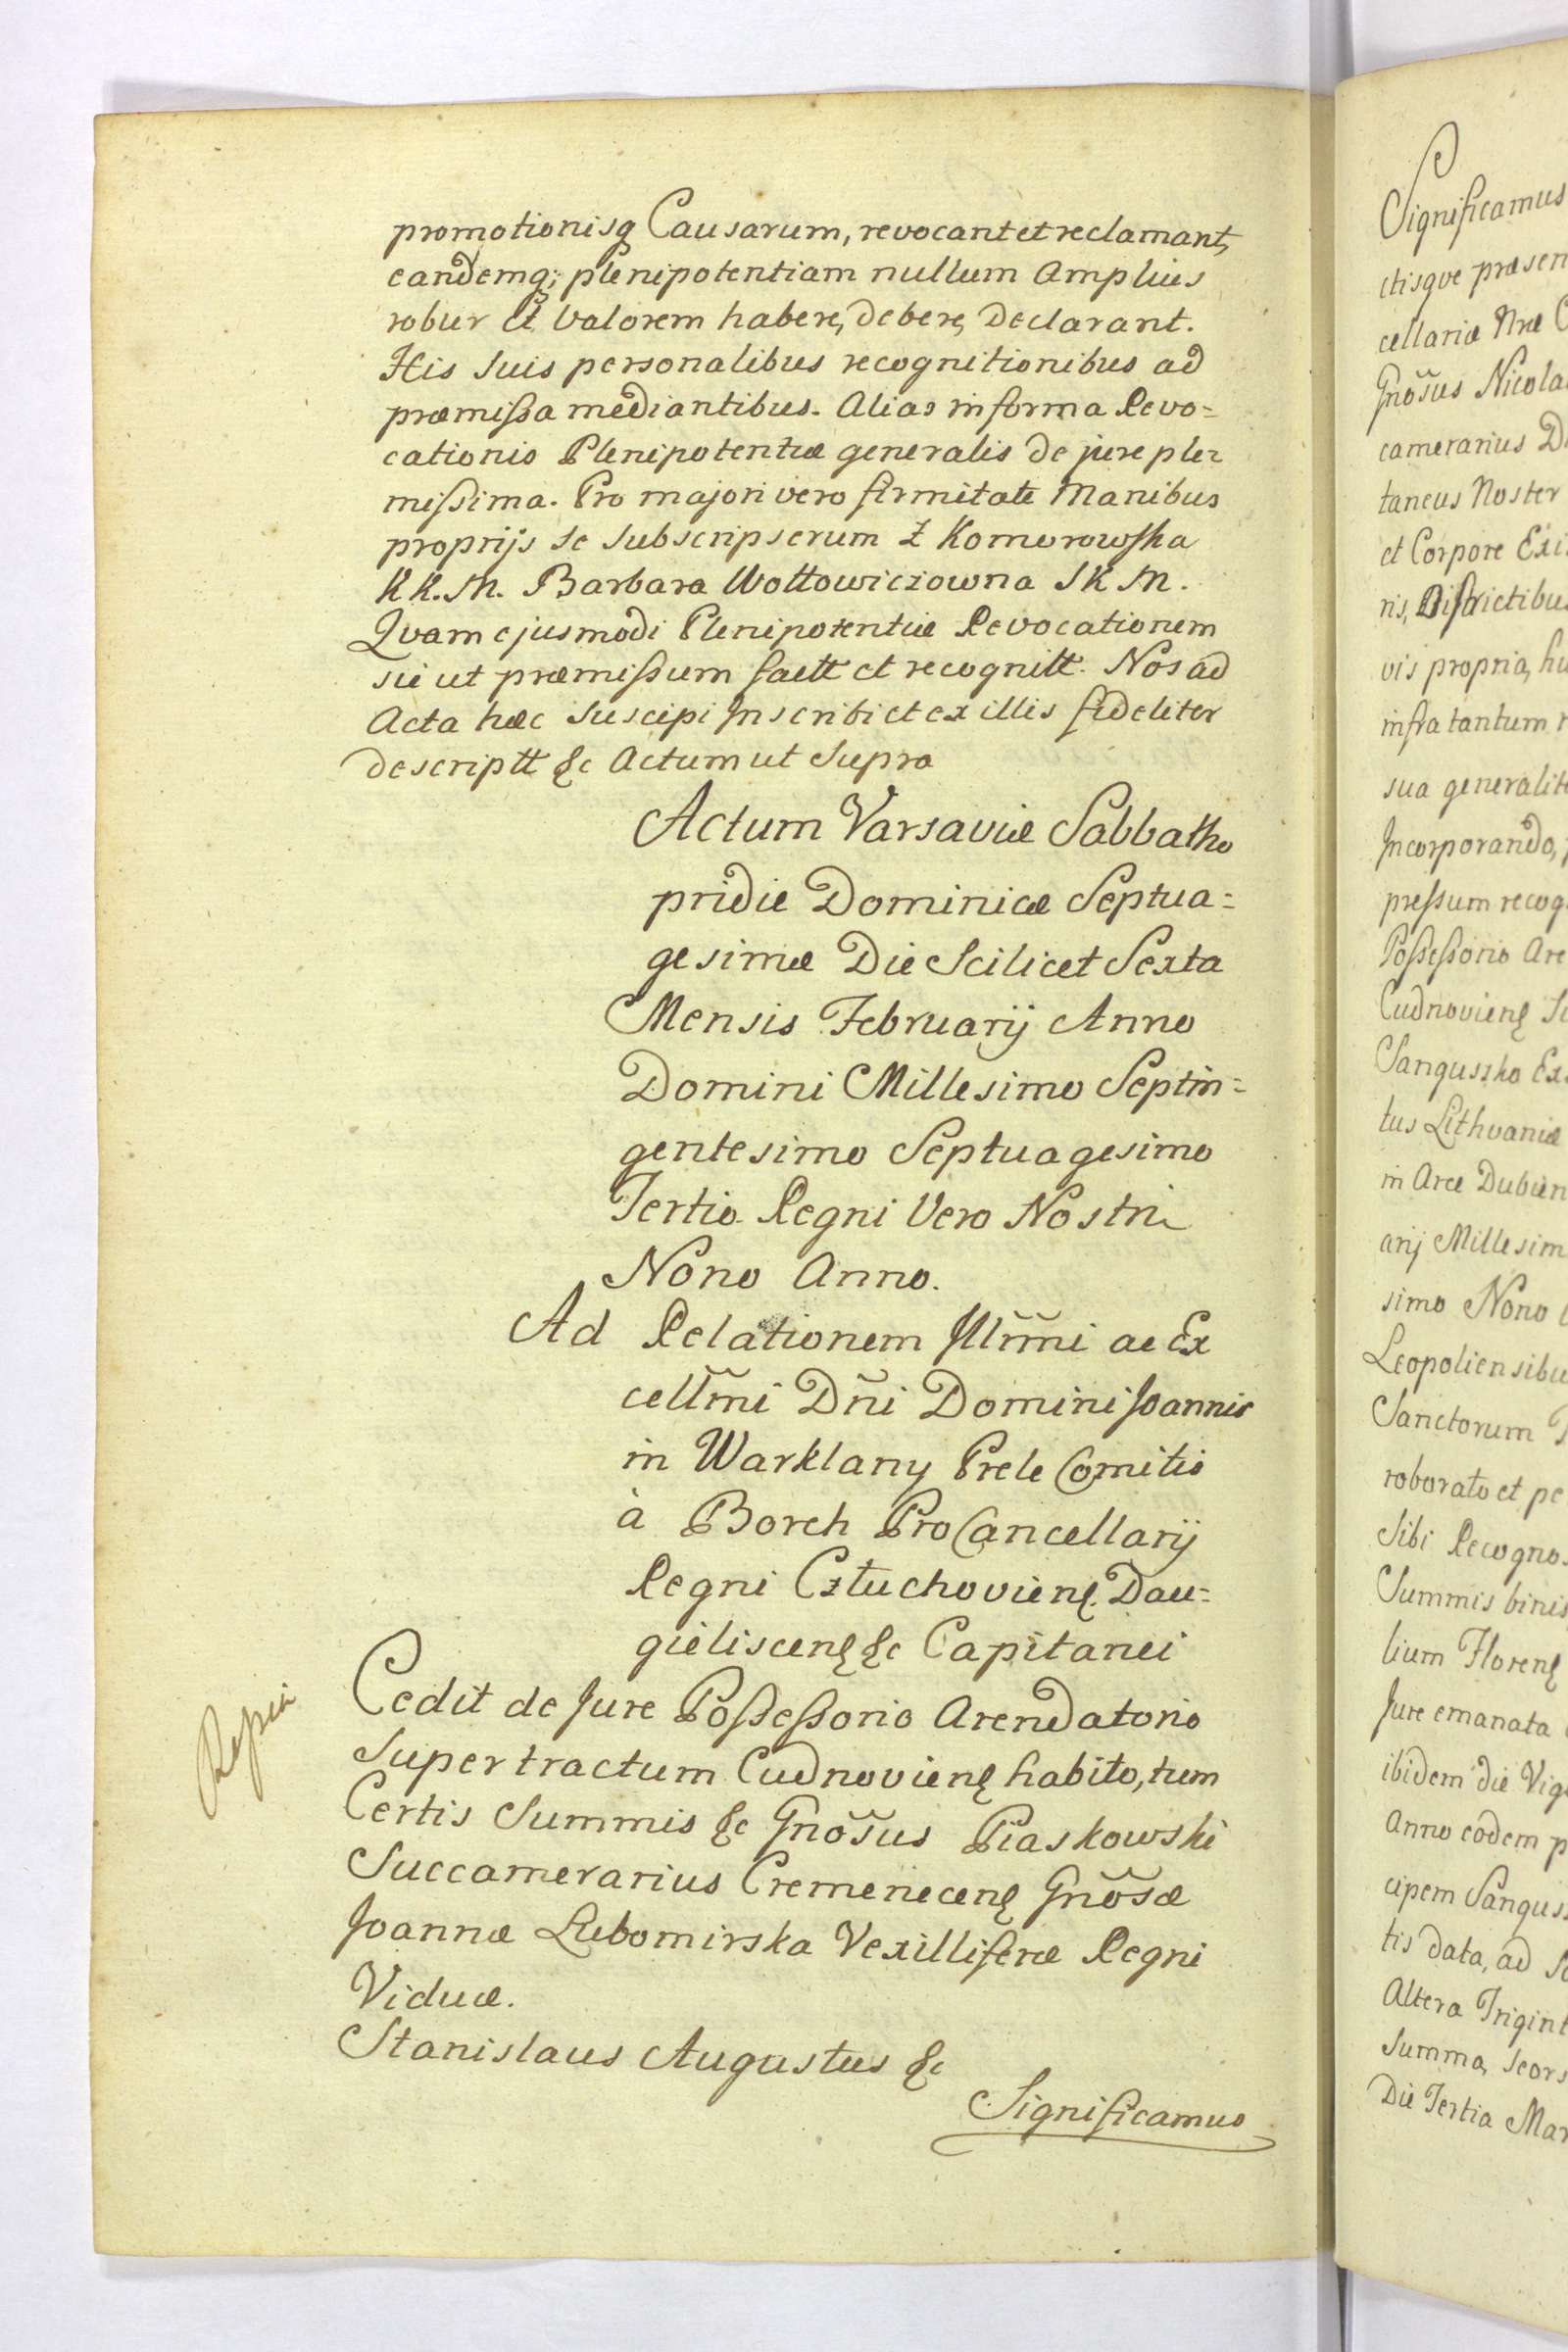 promotionisq Causarum, revocant et reclamant,
eandemq; plenipotentiam nullum Amplius
robur et Valorem habere, debere, Declarant.
His Suis personalibus recognitionibus ad
præmissa mediantibus. Alias in forma Revo=
cationis Plenipotentiæ generalis de jure ple=
missima. Pro majori vero firmitate Manibus
proprijs se Subscripserum Z Komorowska
K K. M. Barbara Wołłowiczowna S K M.
Qvam ejusmodi Plenipotentiæ Revocationem
sic ut præmissum factt et recognitt. Nos ad
Acta hæc Suscipi Inscribi et ex illis fideliter
descriptt &c Actum ut Supra
Actum Varsaviæ Sabbatho
pridie Dominicæ Septua=
gesimæ Die Scilicet Sexta
Mensis Februarij Anno
Domini Millesimo Septin=
gentesimo Septuagesimo
Tertio Regni Vero Nostri
Nono Anno.
Ad Relationem Illm̃i ac Ex
cellm̃i Dñi Domini Joannis
in Warklany Prele Comitis
à Borch ProCancellarij
Regni Człuchovienś Dau=
gieliscenś &c Capitanei
Cedit de Jure Possessorio Arendatorio
Super tractum Cudnovienś habito, tum
Certis Summis &c Gnõsus Piaskowski
Succamerarius Cremenecenś Gnõsæ
Joannæ Lubomirska Vexilliferæ Regni
Viduæ.
Stanislaus Augustus &c
Significamus
Significamus
ctisque præsen
cellariæ Nræ C
Gnõsus Nicola
camerarius D
taneus Noster
et Corpore Exi
nis, Districtibus
vis propria, hu
infra tantum
sua generalit
Incorporando,
pressum recog
Possessorio Are
Cudnovienś
Sanguszko Ex
tus Lithvaniæ
in Arce Dubien
arij Millesim
simo Nono
Leopoliensibu
Sanctorum
roborato et pe
Sibi Recogno
Summis binis
lium Florenś
Jure emanata
ibidem die Vig
Anno eodem p
cipem Sangus
tis data, ad
Altera Trigint
Summa, seors
Die Tertia Mar